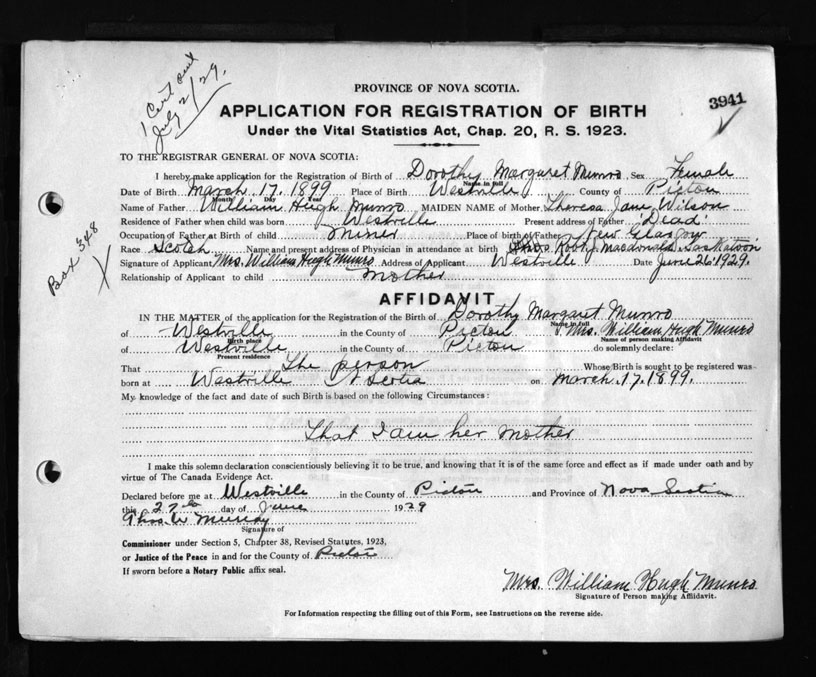 1 Cert sent
July 2/29.
PROVINCE OF NOVA SCOTIA.
3941
APPLICATION FOR REGISTRATION OF BIRTH
Under the Vital Statistics Act, Chap. 20, R. S. 1923.
TO THE REGISTRAR GENERAL OF NOVA SCOTIA:
I hereby make application for the Registration of Birth of Dorothy Margaret Munro Sex Female
Name in full
Date of Birth March 17. 1899 Place of Birth Westville County of Pictou
Month Day Year
Name of Father William Hugh Munro MAIDEN NAME of Mother Theresa Jane Wilson
Residence of Father when child was born Westville Present address of Father 'Dead'
Occupation of Father at Birth of child Miner Place of birth of Father New Glasgow
Race Scotch Name and present address of Physician in attendance at birth Macdonald Saskatoon
Signature of Applicant Mrs. William Hugh Munro Address of Applicant Westville Date June 26. 1929.
Relationship of Applicant to child Mother
Box 348
AFFIDAVIT
IN THE MATTER of the application for the Registration of the Birth of Dorothy Margaret Munro
Name in full
of Westville in the County of Pictou I, Mrs. William Hugh Munro
Birth place Name of person making Affidavit
of Westville in the County of Pictou do solemnly declare:
Present residence
That The person Whose Birth is sought to be registered was
born at Westville N Scotia on March. 17. 1899.
My knowledge of the fact and date of such Birth is based on the following Circumstances:
That I am her Mother
I make this solemn declaration conscientiously believing it to be true, and knowing that it is of the same force and effect as if made under oath and by
virtue of The Canada Evidence Act.
Declared before me at Westville in the County of Pictou and Province of Nova Scotia
this 27th day of June 1929
Thos W Murray
Signature of
Commissioner under Section 5, Chapter 38, Revised Statutes, 1923,
or Justice of the Peace in and for the County of Pictou
If sworn before a Notary Public affix seal.
Mrs. William Hugh Munro
Signature of Person making Affidavit.
For Information respecting the filling out of this Form, see Instructions on the reverse side.